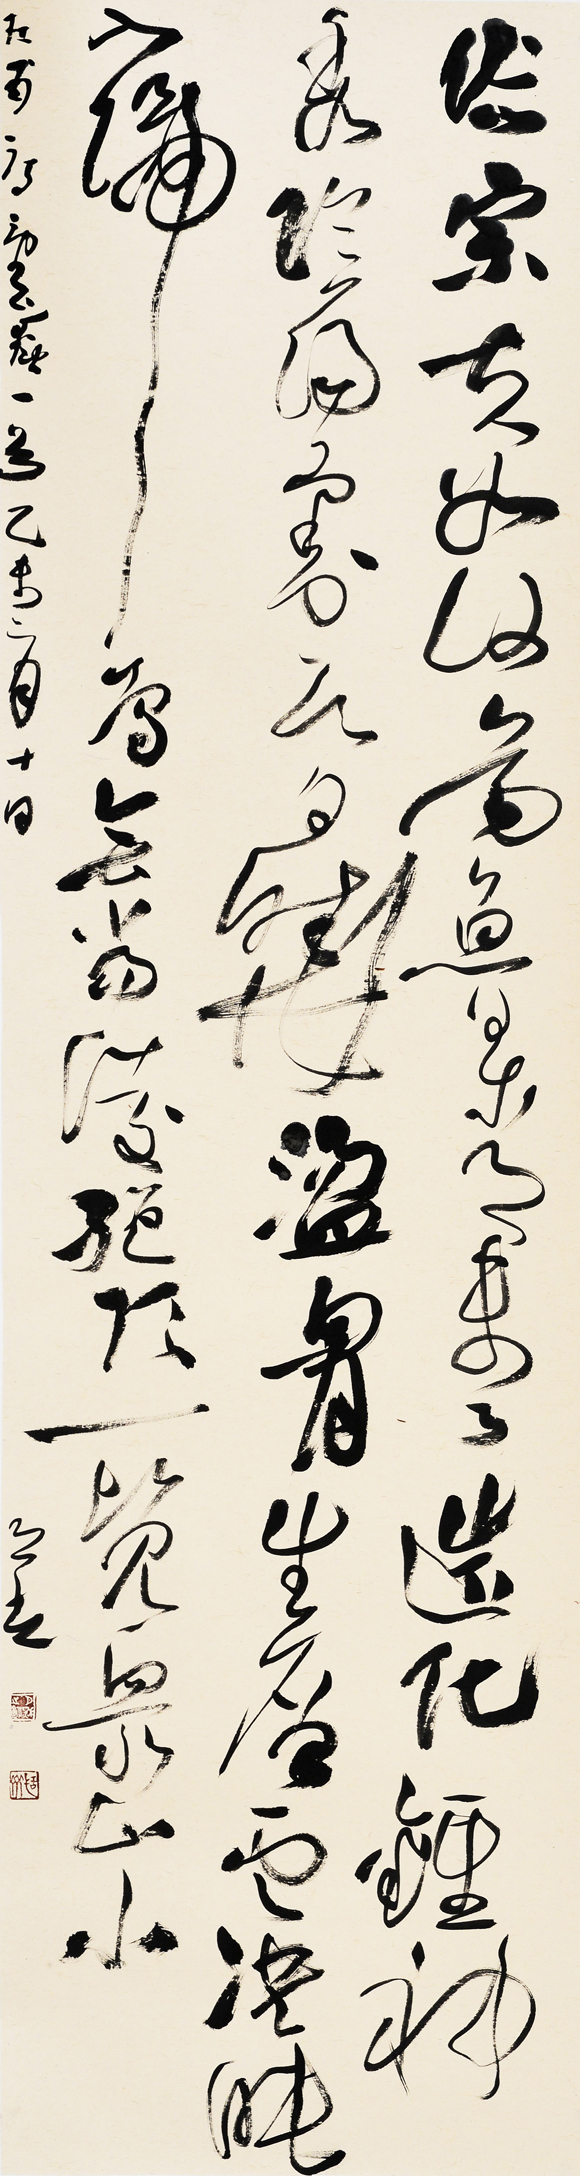 岱宗夫如何齊魯青未了造化鍾神
秀陰陽割昏曉盪胷生層雲決眥
入歸鳥會當凌絕頂一覽衆山小
杜甫詩望嶽一首乙未二月十日